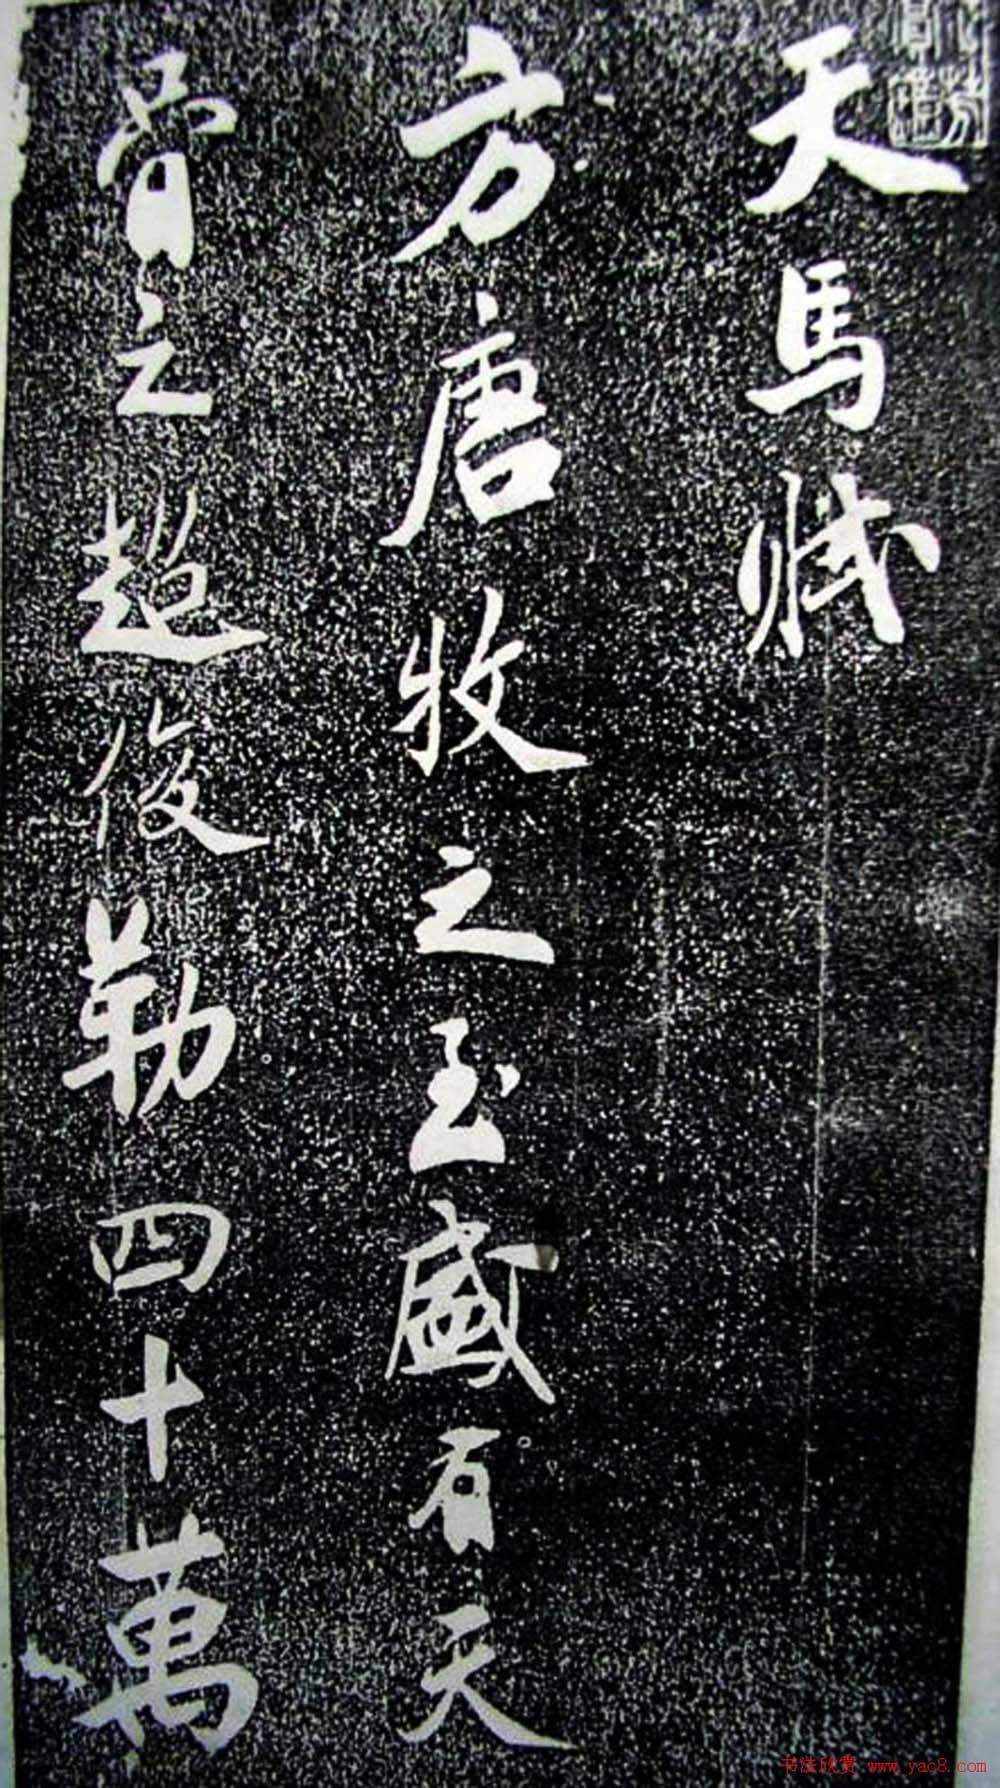 天馬賦
方唐牧之至盛有天
骨之超俊勒四十萬
书法欣赏 www.yac8.com